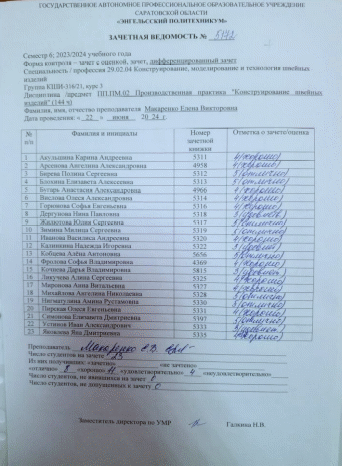 ГОСУДАРСТВЕННОЕ АВТОНОМНОЕ ПРОФЕССИОНАЛЬНОЕ ОБРАЗОВАТЕЛЬНОЕ УЧРЕЖДЕНИЕ
САРАТОВСКОЙ ОБЛАСТИ
«ЭНГЕЛЬССКИЙ ПОЛИТЕХНИКУМ»
ЗАЧЕТНАЯ ВЕДОМОСТЬ №
Семестр 6, 2023/2024 учебного года
Форма контроля – зачет с оценкой, зачет, дифференцированный зачет
Специальность / профессия 29.02.04 Конструирование, моделирование и технология швейных
изделий
Группа КШИ-316/21, курс 3
Дисциплина /предмет ПП.ПМ.02 Производственная практика "Конструирование швейных
изделий" (144 ч)
Фамилия, имя, отчество преподавателя Макаренко Елена Викторовна
Дата проведения « 22 » июня 20 24 г.
№ п/п Фамилия и инициалы Номер зачетной книжки Отметка о зачете/оценка
1 Карина Андреевна 5311 4 (хорошо)
2 Ангелина Александровна 4958 4 (хорошо)
3 Полина Сергеевна 5312 5 (отлично)
4 Блохина Елизавета Алексеевна 5313 5 (отлично)
5 Анастасия Александровна 4966
6 Олеся Александровна 5314 4 (хорошо)
7 Софья Евгеньевна 5316 4 (хорошо)
8 Дергунова Нина Павловна 5318
9 Юлия Сергеевна 5317
10 Зимина Милица Сергеевна 5319
11 Иванова Василина Андреевна 5320
12 Калинкина Надежда Игоревна 5322
13 Кобцева Алёна Антоновна 5656
14 Фролова Софья Владимировна 4369
15 Кочнева Дарья Владимировна 5815
16 Алина Сергеевна 5325
17 Миронова Анна Витальевна 5327
18 Михайлова Ангелина Николаевна 5328
19 Нигматулина Амина Рустамовна 5330
20 Олеся Евгеньевна 5331
21 Симонова Елизавета Дмитриевна 5397
22 Устинов Иван Александрович 5333
23 Яковлева Яна Дмитриевна 5335
Преподаватель Макаренко Е.В.
Число студентов на зачете 23
Из них получивших: «зачтено» «не зачтено»
«отлично» 8 «хорошо» 11 «удовлетворительно» 4 «неудовлетворительно»
Число студентов, не явившихся на зачет 0
Число студентов, не допущенных к зачету 0
Заместитель директора по УМР Галкина Н.В.